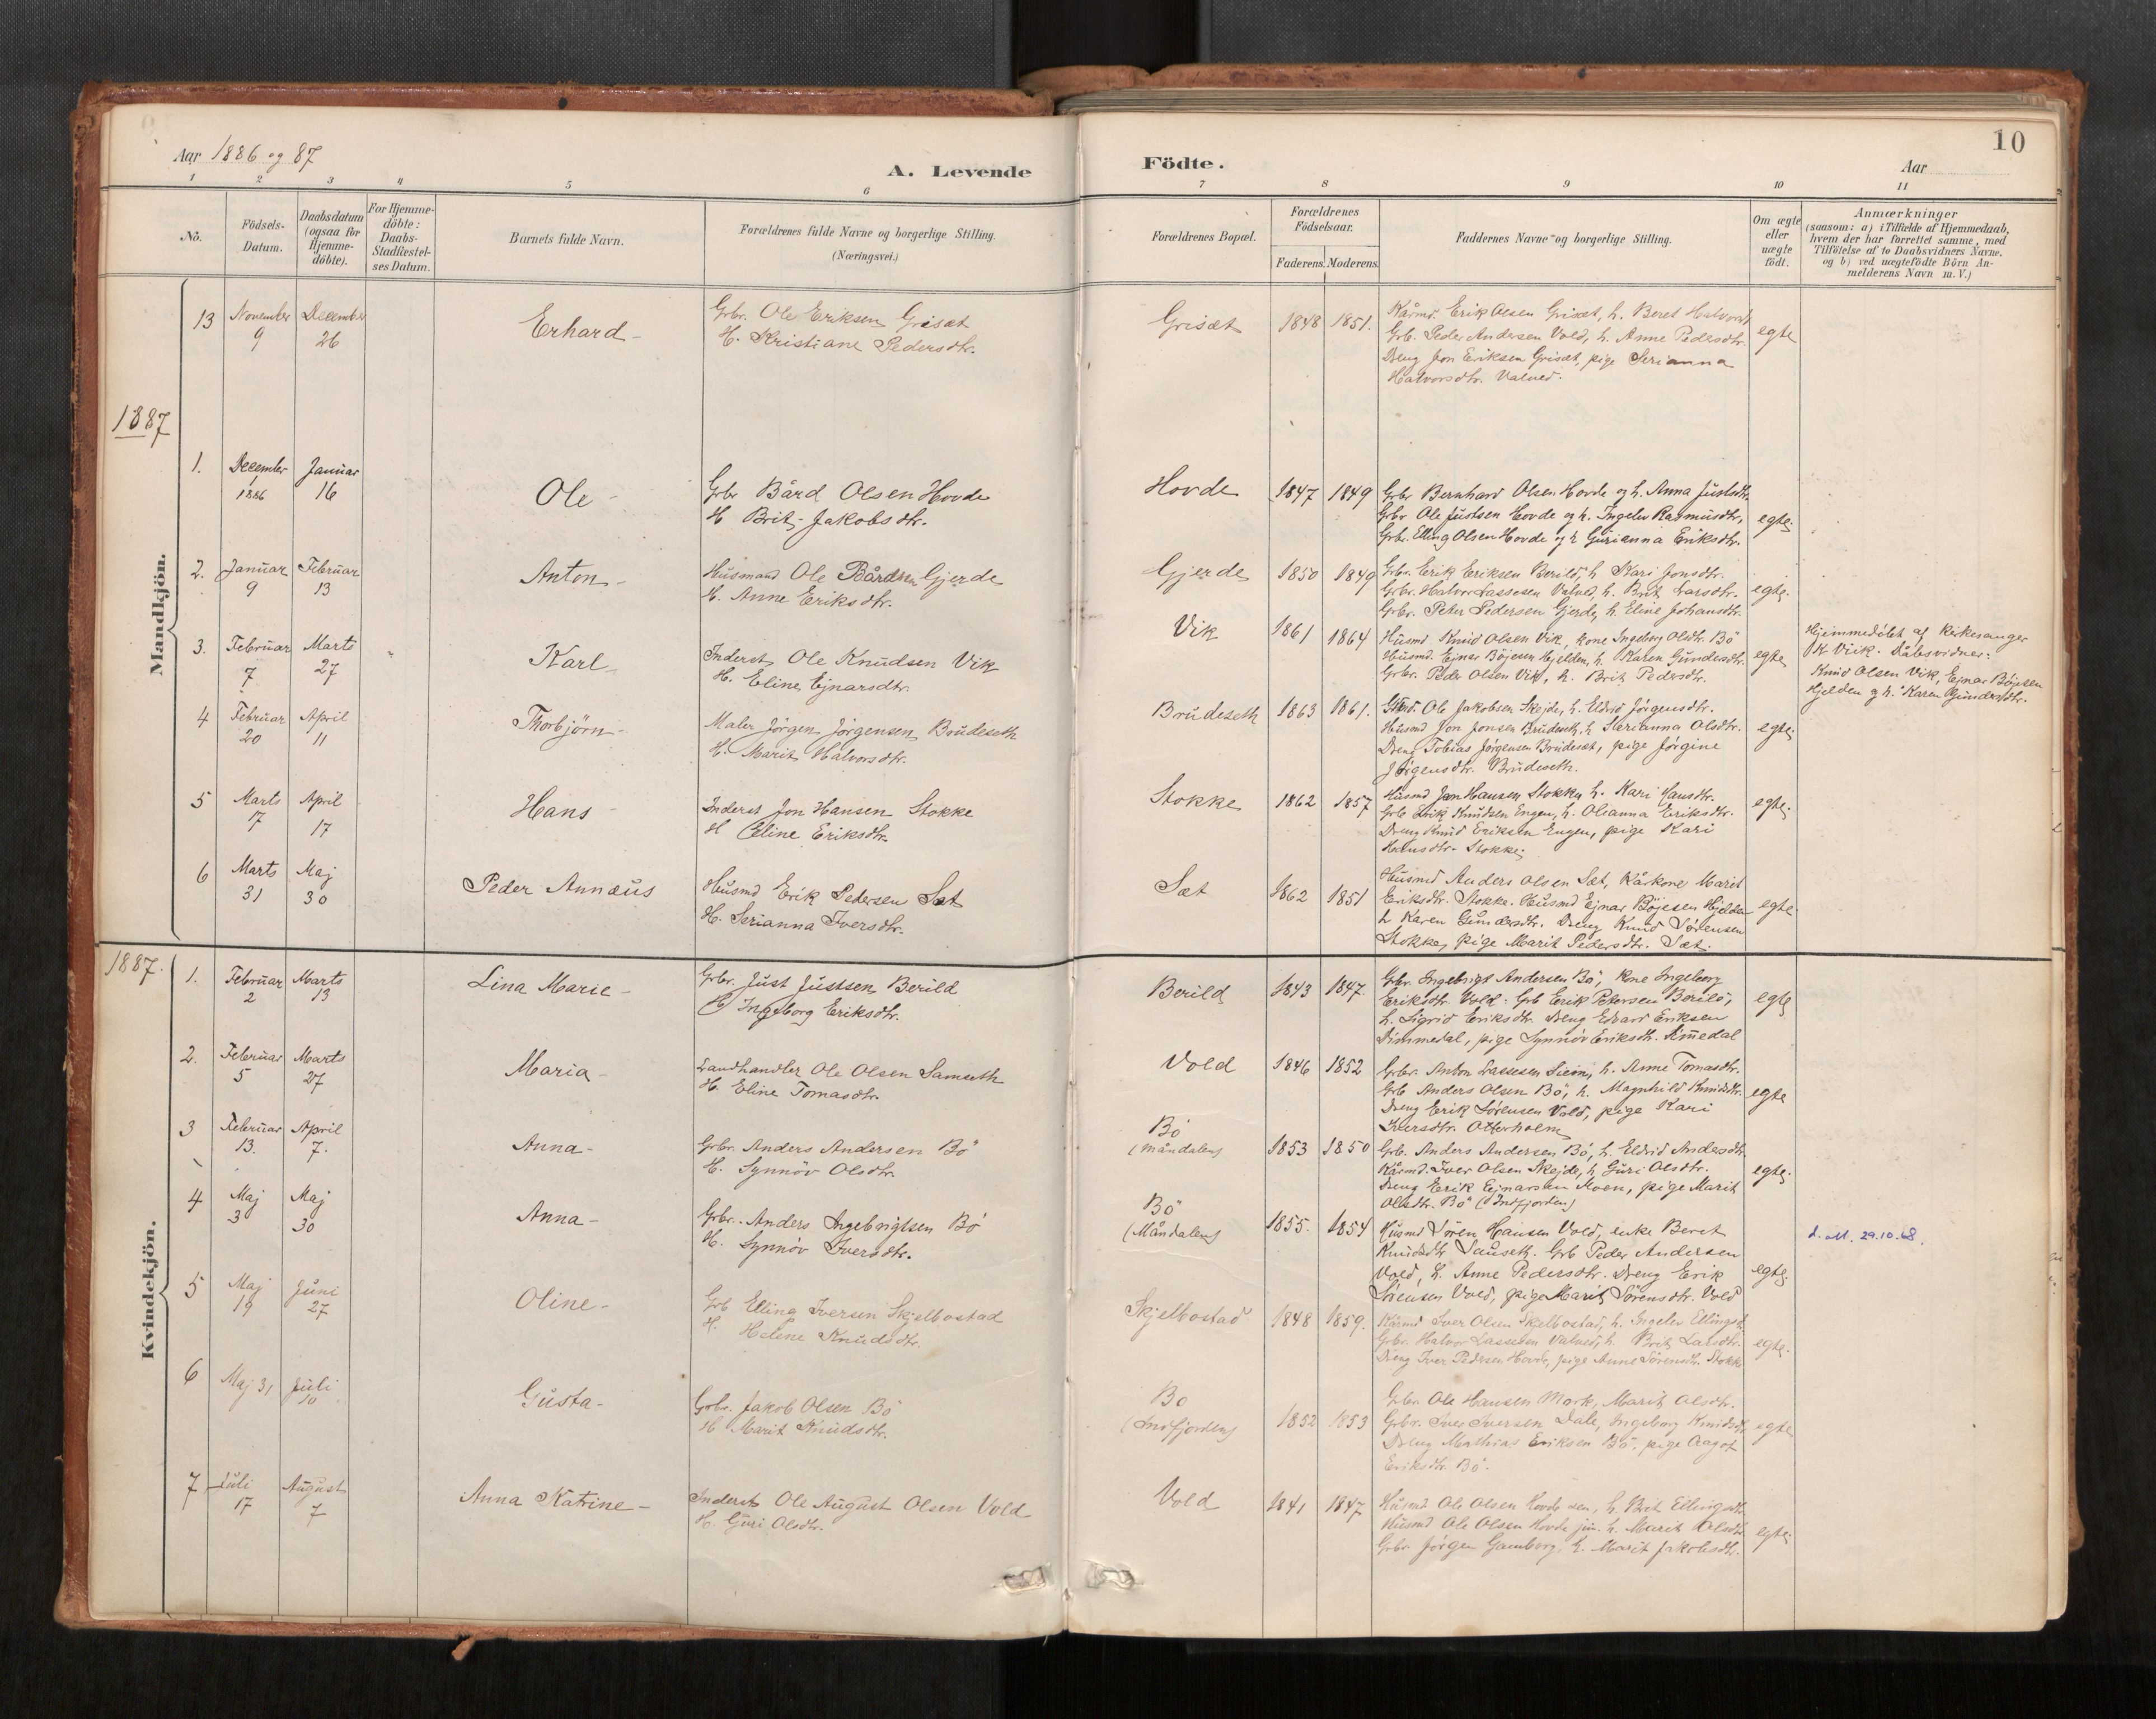 10
Aar 1886 og 87
A. Levende
Födte.
Aar
1 2 3 4 5 6
7 8 9 10 11
No.
Födsels-Datum.
Daabsdatum (ogsaa for Hjemme-döbte).
For Hjemme-döbte: Daabs-Stadfæstel-ses Datum.
Barnets fulde Navn.
Forældrenes fulde Navne og borgerlige Stilling.
(Næringsvei.)
Forældrenes Bopæl.
Forældrenes Födselsaar.
Faderens. Moderens.
Faddernes Navne og borgerlige Stilling.
Om ægte eller uægte födt.
Anmærkninger
(saasom: a) i Tilfælde af Hjemmedaab,
hvem der har forrettet samme, med
Tilföielse af to Daabsvidners Navne.
og b) ved uægtefödte Börn An-
melderens Navn m. V.)
Mandkjön.
13 November 9 December 26
Erhard -
Grbr. Ole Eriksen Grisæt
H. Kristiane Pedersdtr.
Grisæt 1848 1851.
Kårmd. Erik Olsen Grisæt, h. Beret Halvorsdtr
Grb. Peder Andersen Vold, h. Anne Pedersdtr.
Dreng Jon Eriksen Grisæt, pige Serianna
Halvorsdtr. Valved.
egte
1887
1. December 1 1886 Januar 16
Ole -
Grbr Bård Olsen Hovde
H Brit Jakobsdtr.
Hovde 1847 1849
Grbr Bernhard Olsen Hovde og h. Anna Justsdtr.
Grbr Ole Justsen Hovde og h. Ingelev Rasmusdtr,
Grbr. Elling Olsen Hovde og h Gurianna Eriksdtr.
egte
2. Januar 9 Februar 13
Anton -
Husmand Ole Bårdsen Gjerde
H. Anne Eriksdtr.
Gjerde 1850 1849
Grbr. Erik Eriksen Berild, h Kari Jonsdtr.
Grbr. Halvor Lassesen Valved, h. Brit Larsdtr.
Grbr. Peter Pedersen Gjerde, h. Eline Johansdtr.
egte
3. Februar 7 Marts 27
Karl -
Inderst Ole Knudsen Vik
H. Eline Ejnarsdtr.
Vik 1861 1864
Husmd. Knud Olsen Vik, kone Ingeborg Olsdtr. Bö
Husmd. Ejnar Böjesen Hjelden, h. Karen Gundersdtr.
Grbr. Peder Olsen Vik, h. Brit Pedersdtr.
egte
Hjemmedöbt af Kirkesanger
K Viik. Dåbsvidner:
Knud Olsen Vik, Ejnar Böjesen
Hjelden og h. Karen Gundersdtr.
4 Februar 20 April 11
Thorbjörn -
Maler Jörgen Jörgensen Brudeseth
H. Marit Halvorsdtr.
Brudeseth 1863 1861.
Ole Jakobsen Skejde, h. Eldrid Jörgensdtr.
Husmd Jon Jonsen Brudeseth, h Serianna Olsdtr.
Dreng Tobias Jörgensen Brudeset, pige Jörgine
Jörgensdtr. Brudeseth.
egte
5 Marts 17 April 17
Hans -
Inderst Jon Hansen Stokke
H Eline Eriksdtr.
Stokke 1862 1857
Husmd Jon Hansen Stokke h. Kari Hansdtr.
Grb Erik Knudsen Engen, h. Oleanna Eriksdtr.
Dreng Knud Eriksen Engen, pige Kari
Hansdtr. Stokke.
egte
6 Marts 31 Maj 30
Peder Annæus
Husmd Erik Pedersen Sæt
H. Serianna Iversdtr.
Sæt 1862 1851
Husmd Anders Olsen Sæt, Kårkone Marit
Eriksdtr. Stokke. Husmd Ejnar Böjesen Hjelden
h Karen Gundersdtr. Dreng Knud Sörensen
Stokke, pige Marit Pedersdtr. Sæt.
egte
1887.
Kvindekjön.
1. Februar 2 Marts 13
Lina Marie -
Grbr. Just Justsen Berild
H Ingeborg Eriksdtr.
Berild 1843 1847.
Grbr. Ingebrigt Andersen Bö, kone Ingeborg
Eriksdtr. Vold. Grb Erik Petersen Berild,
h. Sigrid Eriksdtr. Dreng Edvard Eriksen
Dimmedal, pige Synnöv Eriksdtr. Dimedal
egte
2. Februar 5 Marts 27
Maria -
Landhandler Ole Olsen Samseth
H. Eline Tomasdtr.
Vold 1846 1852
Grbr. Anton Lassesen Siem, h. Anne Tomasdtr.
Grb Anders Olsen Bö, h. Magnhild Knudsdtr.
Dreng Erik Sörensen Vold, pige Kari
Iversdtr. Otterholm
egte
3 Februar 13. April 7.
Anna -
Grbr. Anders Andersen Bö
H. Synnöv Olsdtr.
Bö (Måndalen) 1853 1850
Grb. Anders Andersen Bö, h. Eldrid Andersdtr
Kårmd. Iver Olsen Skejde, h Guri Olsdtr.
Dreng Erik Ejnarsen Moen, pige Marit
Olsdtr. Bö (Indfjorden)
egte
4 Maj 3 Maj 30
Anna -
Grbr. Anders Ingebrigtsen Bö
H. Synnöv Iversdtr.
Bö (Måndalen) 1855. 1854
Husmd Sören Hansen Vold, enke Beret
Knudsdtr Sauseth. Grb Peder Andersen
Vold, h. Anne Pedersdtr. Dreng Erik
Sörensen Vold, pige Marit Sörensdtr. Vold
egte
d. att. 29.10.68.
5 Maj 19 Juni 27
Oline -
Grb Elling Iversen Skjelbostad
H. Helene Knudsdtr.
Skjelbostad 1848 1859.
Kårmd Iver Olsen Skjelbostad, h. Ingelev Ellingsdtr
Grbr. Halvor Lassesen Valved, h. Brit Larsdtr.
Dreng Iver Pedersen Hovde, pige Anne Sörensdtr. Stokke
egte
6 Maj 31 Juli 10
Gusta -
Grbr. Jakob Olsen Bö
H Marit Knudsdtr.
Bö (Indfjorden) 1852 1853
Grbr Ole Hansen Mork, Marit Olsdtr.
Grbr. Iver Iversen Dale, Ingeborg Knudsdtr
Dreng Mathias Eriksen Bö, pige Aagot
Eriksdtr. Bö.
egte
7 Juli 17 August 7
Anna Katrine -
Inderst Ole August Olsen Vold
H. Guri Olsdtr.
Vold 1841 1847
Husmd Ole Olsen Hovde sen, h. Brit Ellingsdtr.
Husmd Ole Olsen Hovde jun. h. Marit Olsdtr
Grbr Jörgen Gamberg, h. Marit Jakobsdtr.
egte